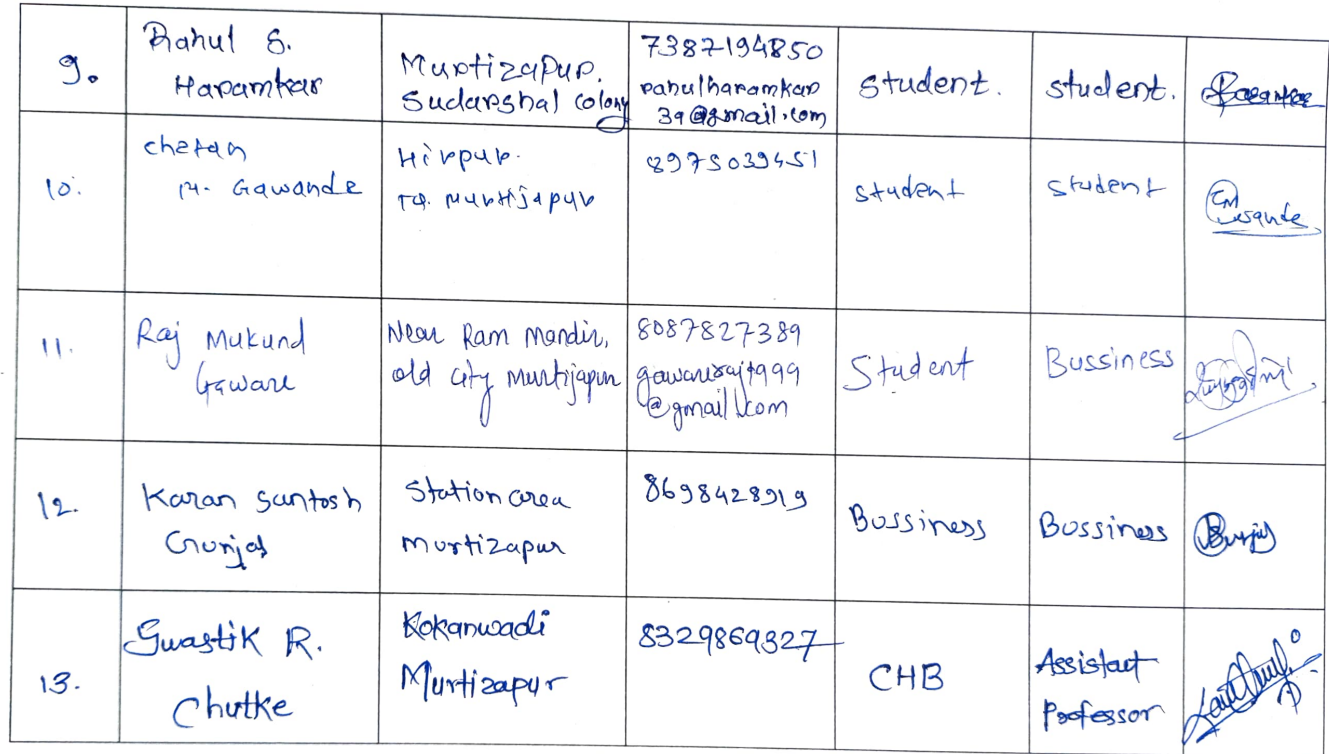 9.
Rahul S.
Haramkar
Murtizapur.
Sudarshal colony
7387194850
rahulharamkar
39@gmail.com
student.
student.
10.
chetan
M. Gawande
Hirpur.
TQ. Murtijapur
8975039451
student
student
11.
Raj Mukund
Gaware
Near Ram Mandir,
old city Murtijapur
8087827389
gawareraj1999
@gmail.com
Student
Bussiness
12.
Karan Santosh
Gunjal
Station area
Murtizapur
8698428919
Bussiness
Bussiness
13.
Swastik R.
Chutke
Kokanwadi
Murtizapur
8329869327
CHB
Assistact
Professor